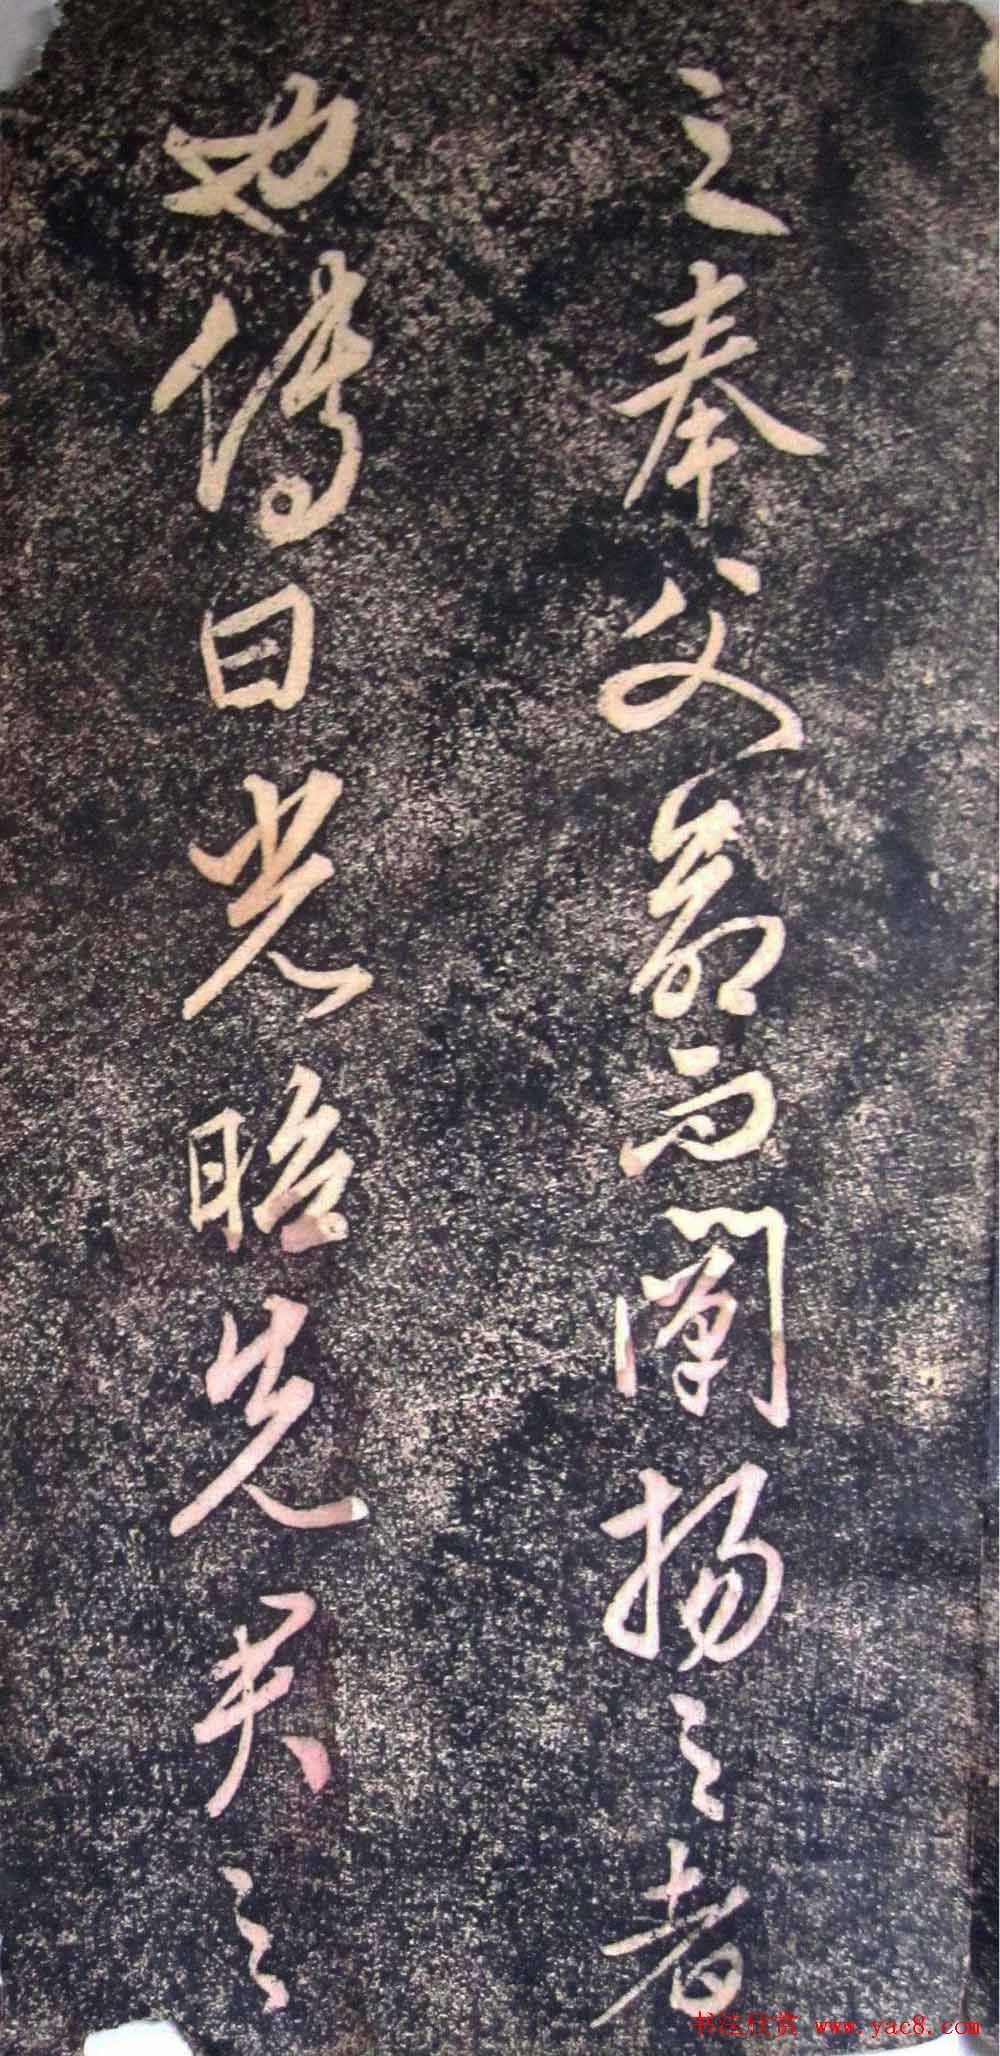 之奉父命而阐扬之者
也传曰光昭先君之
书法欣赏 www.yac8.com